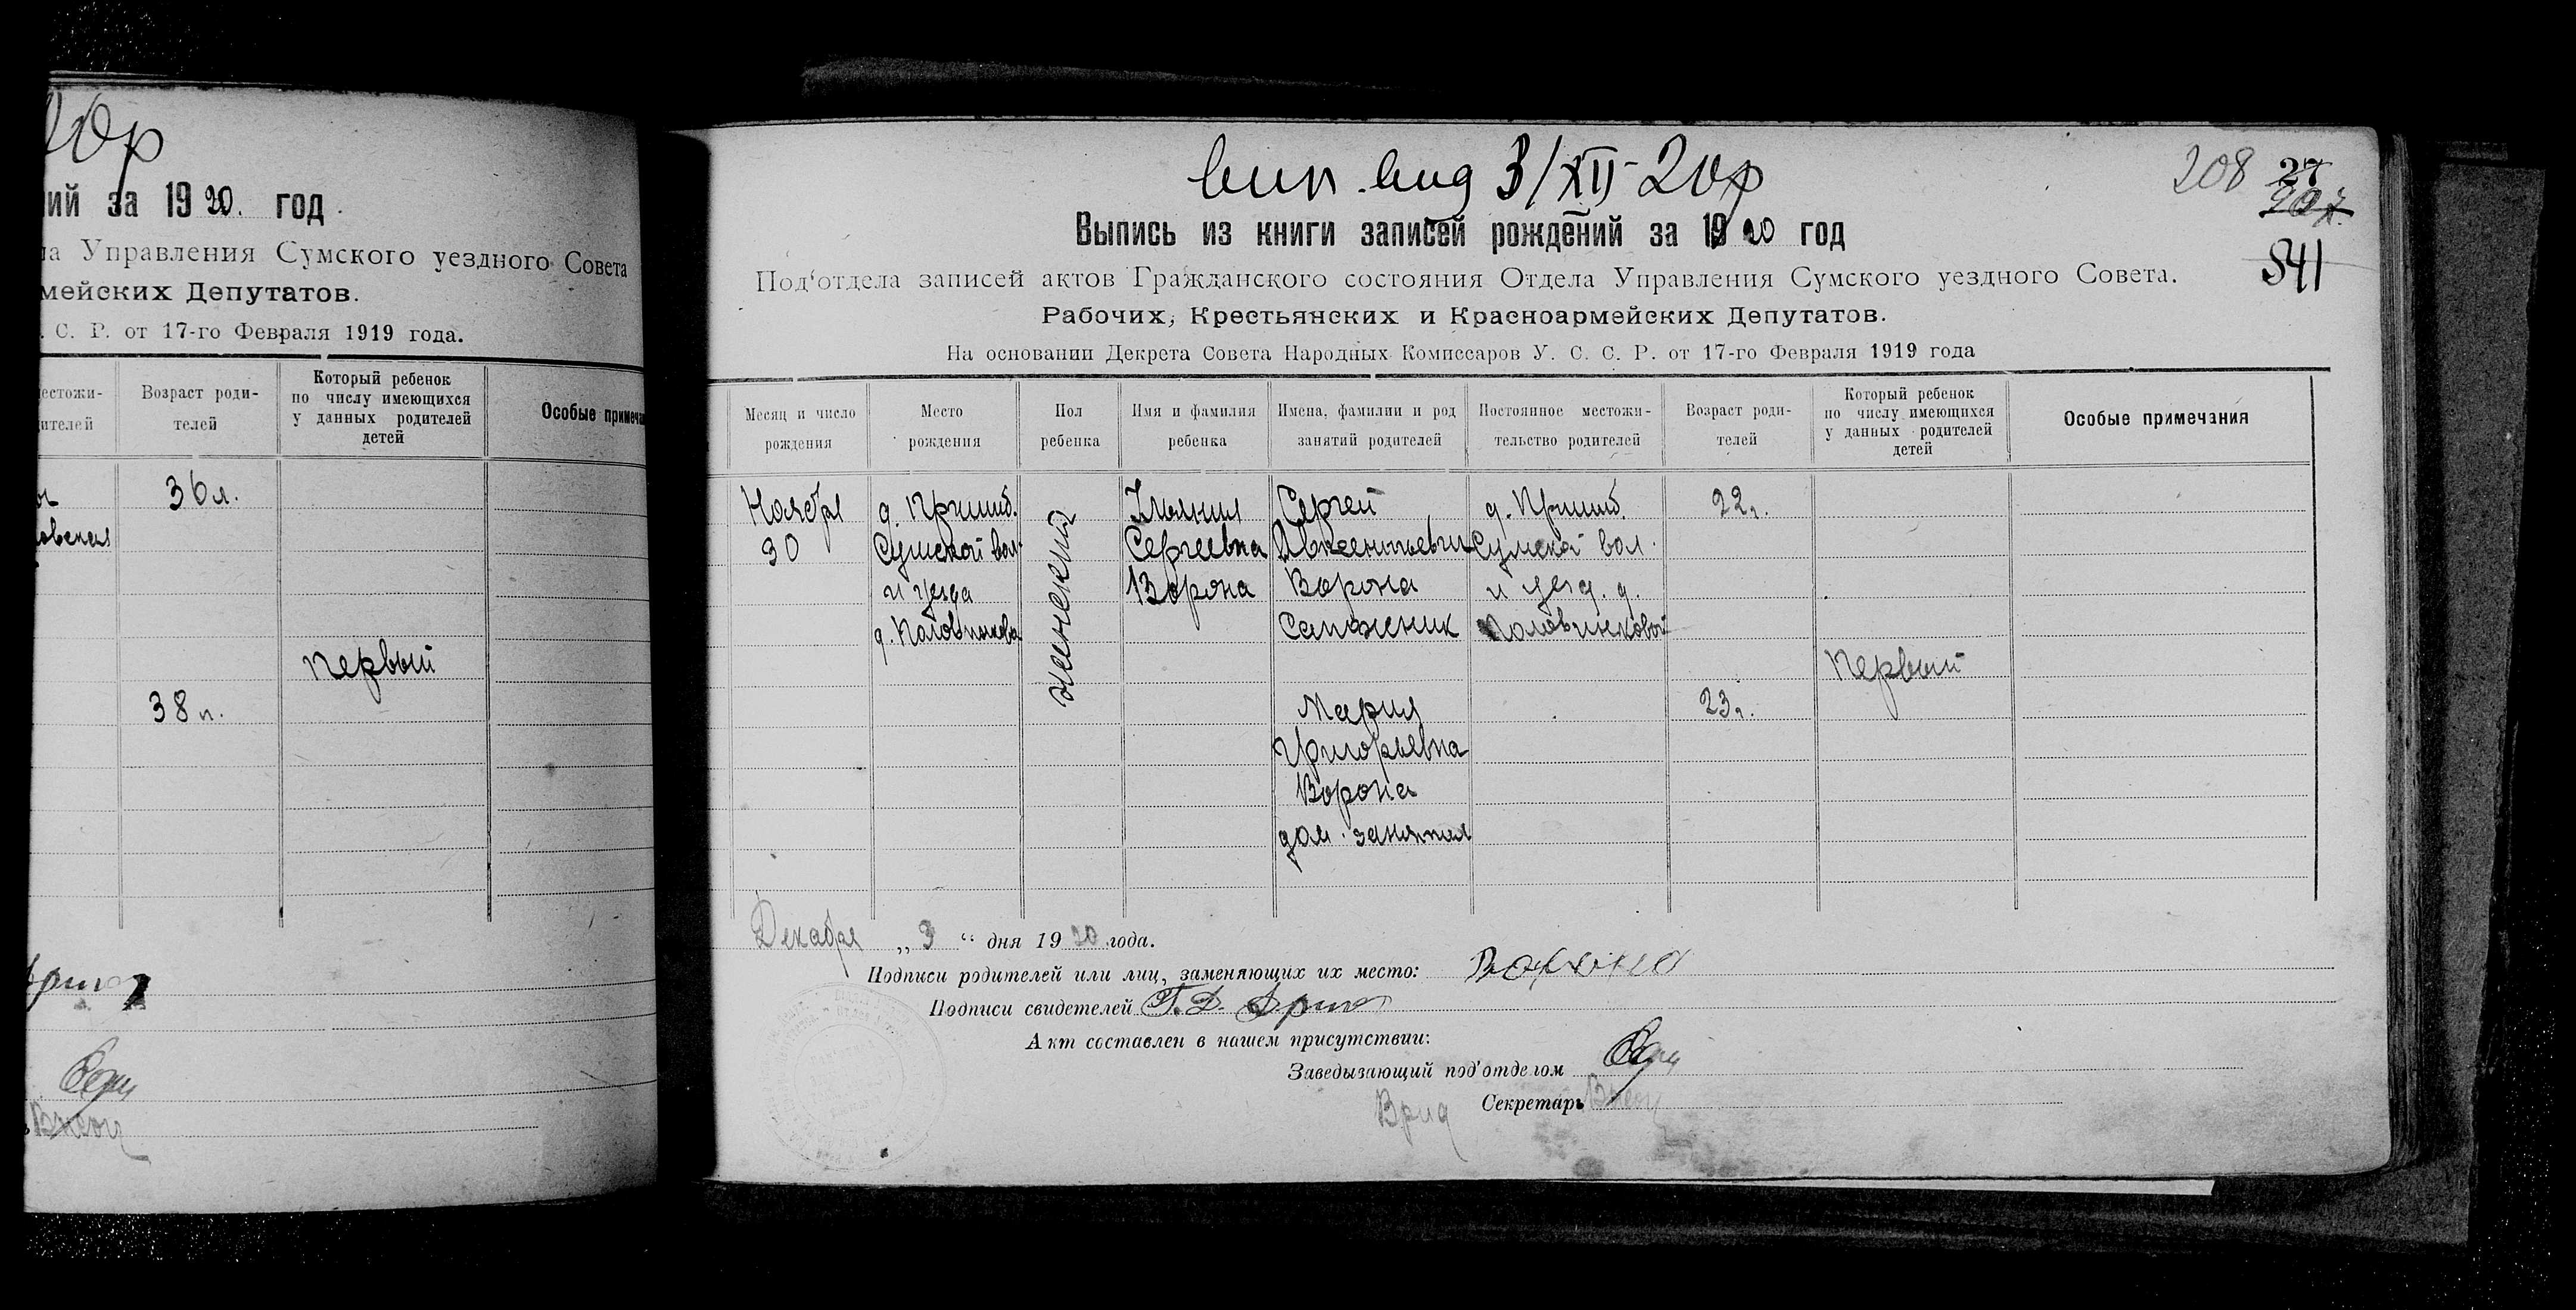 ий за 1920. год
а Управления Сумского уездного Совета
мейских Депутатов.
С. Р. от 17-го Февраля 1919 года.
естожи-
ителей
Возраст роди-
телей
Который ребенок
по числу имеющихся
у данных родителей
детей
Особые примеча
36 л.
овская
первый
38 л.
3/XII 20р
208
27
541
Выпись из книги записей рождений за 1920 год
Под'отдела записей актов Гражданского состояния Отдела Управления Сумского уездного Совета.
Рабочих, Крестьянских и Красноармейских Депутатов.
На основании Декрета Совета Народных Комиссаров У. С. С. Р. от 17-го Февраля 1919 года
Месяц и число
рождения
Место
рождения
Пол
ребенка
Имя и фамилия
ребенка
Имена, фамилии и род
занятий родителей
Постоянное местожи-
тельство родителей
Возраст роди-
телей
Который ребенок
по числу имеющихся
у данных родителей
детей
Особые примечания
Ноября
30
Сумской вол.
и уезда
женский
Сергеевна
Ворона
Сергей
Ворона
Мария
Григорьевна
Ворона
дом. занятия
Сумской вол.
и уезд. д.
22 г.
23 г.
Первый
Декабря „3“ дня 1920 года.
Подписи родителей или лиц, заменяющих их место: Ворона
Подписи свидетелей
Акт составлен в нашем присутствии:
Заведывающий под'отделом
Врид Секретарь